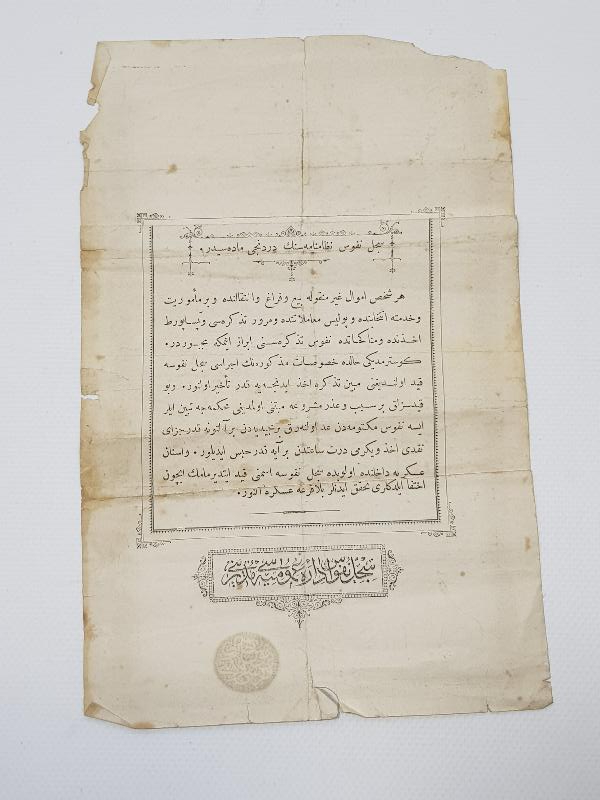 سجل نفوس نظامنامه‌سنك دردنجی ماده‌سیدر.
هر شخص اموال غیر منقوله بیع و فراغ و انتقالنده و بر مأموریت
و خدمته انتخابنده و پولیس معاملاتنده و مرور تذکره‌سی و پساپورط
اخذنده و مناکحاتده نفوس تذکره‌سنی ابراز ایتمکه مجبوردر.
کوسترمدیکی حالده خصوصات مذکوره‌نك اجراسی سجل نفوسه
قید اولندیغنی مبین تذکره اخذ ایدنجه‌یه قدر تأخیر اولنور. و بو
قیدسزلق بر سبب و عذر مشروعه مبتنی اولمدیغی محکمه‌جه تبین ایلر
ایسه نفوس مکتومه‌دن عد اولنه‌رق بر مجیدیه‌دن بر آلتونه قدر جزای
نقدی اخذ و یکرمی درت ساعتدن بر آیه قدر حبس ایدیلور. و اسنان
عسکریه داخلنده اولوبده سجل نفوسه اسمنی قید ایتدیرمامك ایچون
اختفا ایلدکلری تحقق ایدنلر بلا قرعه عسکره آلنور.
سجل نفوس اداره عمومیه سی مدیریتی